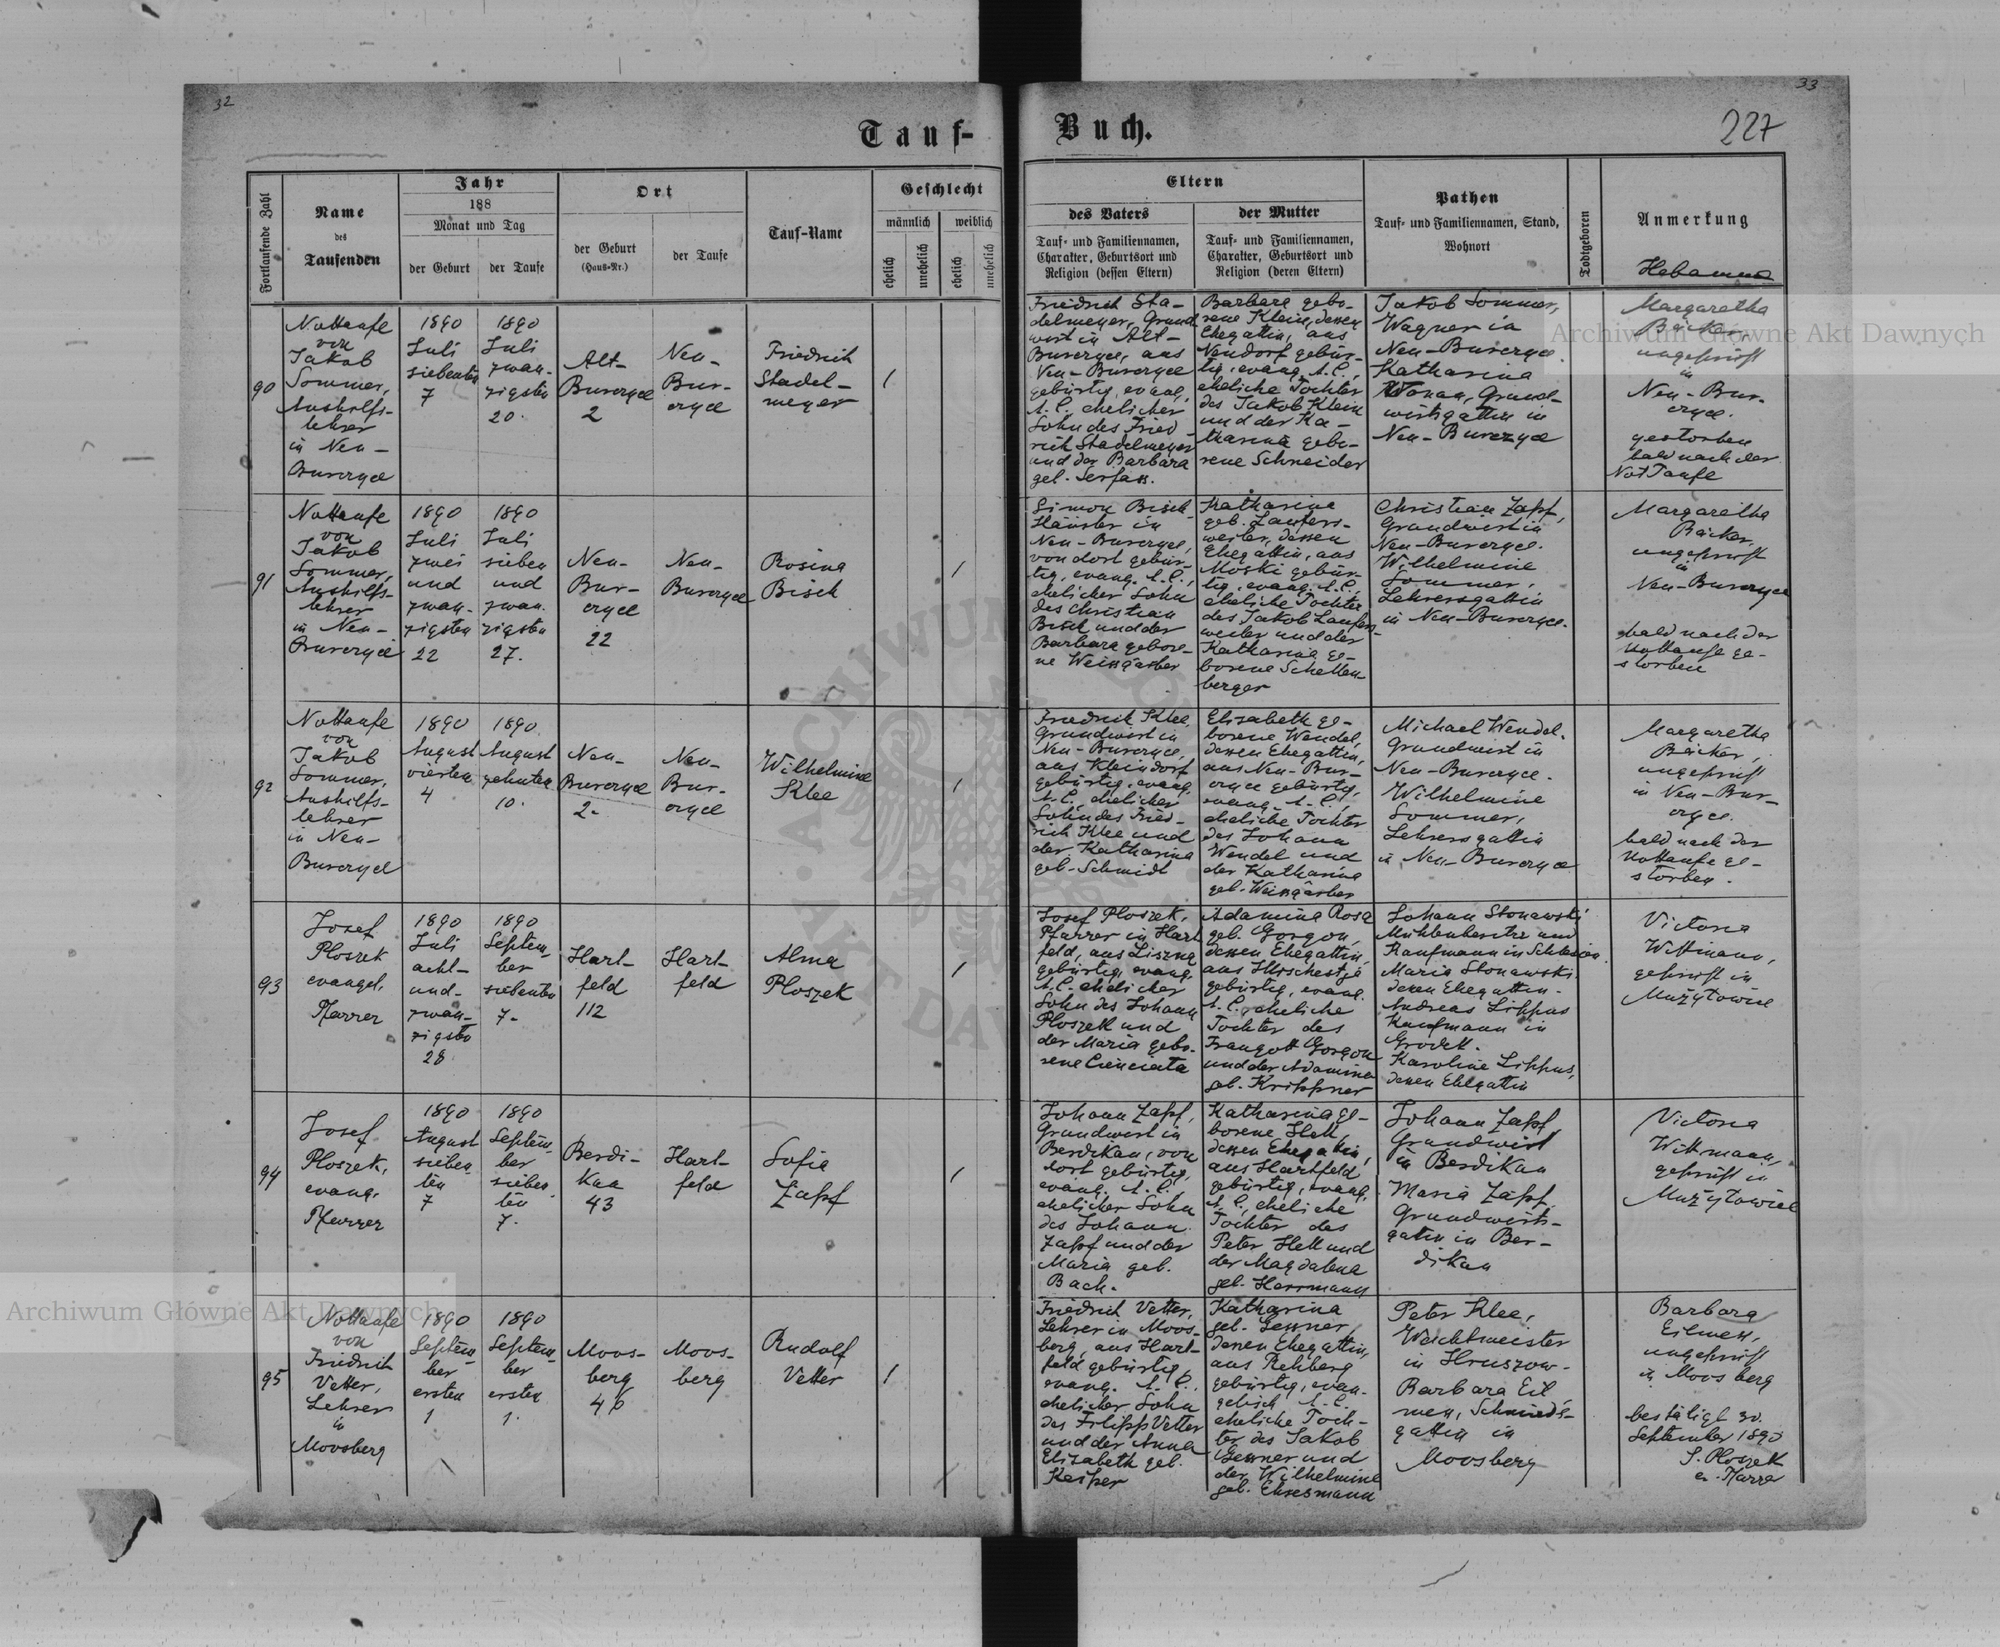 32
33
Tauf-
Buch.
227
Fortlaufende Zahl
Name
des
Taufenden
Jahr
188
Monat und Tag
der Geburt
der Taufe
Ort
der Geburt
(Haus-Nr.)
der Taufe
Tauf-Name
Geschlecht
männlich
weiblich
ehelich
unehelich
ehelich
unehelich
Eltern
des Vaters
Tauf- und Familiennamen,
Charakter, Geburtsort und
Religion (dessen Eltern)
der Mutter
Tauf- und Familiennamen,
Charakter, Geburtsort und
Religion (deren Eltern)
Pathen
Tauf- und Familiennamen, Stand,
Wohnort
Todtgeboren
Anmerkung
Hebamme
90
Nottaufe
von
Jakob
Sommer,
Aushilfs-
lehrer
in Neu-
Burczyce
1890
Juli
siebenten
7
1890
Juli
zwan-
zigsten
20.
Alt-
Burczyce
2
Neu-
Bur-
czyce
Friedrich
Stadel-
meyer
1
Friedrich Sta-
delmeyer, Grund
wirt in Alt-
Burczyce, aus
Neu-Burczyce
gebürtig, evang.
A.C. ehelicher
Sohn des Fried-
rich Stadelmeyer
und der Barbara
geb. Serfass.
Barbara gebo-
rene Klein, dessen
Ehegattin, aus
Neudorf gebür-
tig, evang. A.C.,
eheliche Tochter
des Jakob Klein
und der Ka-
tharina gebo-
rene Schneider
Jakob Sommer,
Wagner in
Neu-Burczyce.
Katharina
Grund-
wirtsgattin in
Neu-Burczyce
Margaretha
Bäcker,
ungeprüft
in
Neu-Bur-
czyce.
gestorben
bald nach der
NotTaufe
91
Nottaufe
von
Jakob
Sommer,
Aushilfs-
lehrer
in Neu-
Burczyce
1890
Juli
zwei
und
zwan-
zigsten
22
1890
Juli
sieben
und
zwan-
zigsten
27.
Neu-
Bur-
czyce
22
Neu-
Burczyce
Rosina
Bisch
1
Simon Bisch
Häusler in
Neu-Burczyce,
von dort gebür-
tig, evang. A.C.,
ehelicher Sohn
des Christian
Bisch und der
Barbara gebore-
ne Weingärber
Katharina
geb. Laufers-
weiler, dessen
Ehegattin, aus
Moski gebür-
tig, evang. A.C.
eheliche Tochter
des Jakob Laufers-
weiler und der
Katharina ge-
borene Schellen-
berger
Christian Zapf,
Grundwirt in
Neu-Burczyce.
Wilhelmine
Sommer,
Lehrersgattin
in Neu-Burczyce.
Margaretha
Bäcker,
ungeprüft
in
Neu-Burczyce
bald nach der
Nottaufe ge-
storben
92
Nottaufe
von
Jakob
Sommer,
Aushilfs-
lehrer
in Neu-
Burczyce
1890
August
vierten
4
1890.
August
zehnten
10.
Neu-
Burczyce
2.
Neu-
Bur-
czyce
Wilhelmine
Klee
1
Friedrich Klee,
Grundwirt in
Neu-Burczyce,
aus Kleindorf
gebürtig, evang.
A.C., ehelicher
Sohn des Fried-
rich Klee und
der Katharina
geb. Schmidt
Elisabeth ge-
borene Wendel,
dessen Ehegattin,
aus Neu-Bur-
czyce gebürtig,
evang. A.C.,
eheliche Tochter
des Johann
Wendel und
der Katharina
geb. Weingärber
Michael Wendel,
Grundwirt in
Neu-Burczyce.
Wilhelmine
Sommer,
Lehrersgattin
in Neu-Burczyce
Margaretha
Bäcker,
ungeprüft
in Neu-Bur-
czyce.
bald nach der
Nottaufe ge-
storben.
93
Josef
Ploszek
evangel.
Pfarrer
1890
Juli
acht-
und-
zwan-
zigsten
28.
1890
Septem-
ber
siebenten
7.
Hart-
feld
112
Hart-
feld
Alma
Ploszek
1
Josef Ploszek,
Pfarrer in Hart
feld, aus Liszna
gebürtig, evang.
A.C. ehelicher
Sohn des Johann
Ploszek und
der Maria gebo-
rene Cienciala
Adamina Rosa
geb. Gorgon,
dessen Ehegattin,
aus
gebürtig, evang.
A.C., eheliche
Tochter des
Traugott Gorgon
und der Adamina
geb. Krippner
Johann Stonawski
Mühlenbesitzer und
Kaufmann in Schlesien.
Maria Stonawski
deren Ehegattin.
Andreas Lippus
Kaufmann in
Grodek.
Karoline Lippus,
dessen Ehegattin
Victoria
Wittmann,
geprüft in
Mużyłowice
94
Josef
Ploszek,
evang.
Pfarrer
1890
August
sieben-
ten
7
1890
Septem-
ber
sieben-
ten
7.
Berdi-
kau
43
Hart-
feld
Sofia
Zapf
1
Johann Zapf,
Grundwirt in
Berdikau, von
dort gebürtig,
evang. A.C.
ehelicher Sohn
des Johann
Zapf und der
Maria geb.
Bach.
Katharina ge-
borene Hett,
dessen Ehegattin,
aus Hartfeld
gebürtig, evang.
A.C., eheliche
Tochter des
Peter Hett und
der Magdalena
geb. Herrmann
Johann Zapf,
Grundwirt
in Berdikau
Maria Zapf,
Grundwirts-
gattin in Ber-
dikau
Victoria
Wittmann,
geprüft in
Mużyłowice
95
Nottaufe
von
Friedrich
Vetter,
Lehrer
in
Moosberg
1890
Septem-
ber
ersten
1
1890
Septem-
ber
ersten
1.
Moos-
berg
46
Moos-
berg
Rudolf
Vetter
1
Friedrich Vetter,
Lehrer in Moos-
berg, aus Hart-
feld gebürtig,
evang. A.C.,
ehelicher Sohn
des Filipp Vetter
und der Anna
Elisabeth geb.
Keiper
Katharina
geb. Gessner,
dessen Ehegattin,
aus Rehberg
gebürtig, evan-
gelisch A.C.
eheliche Toch-
ter des Jakob
Gessner und
der Wilhelmine
geb. Ehresmann
Peter Klee,
Wachtmeister
in Hruszow.
Barbara Eil
mes, Schmieds-
gattin in
Moosberg
Barbara
Eilmes,
ungeprüft
in Moosberg
bestätigt 30.
September 1890
J. Ploszek
ev. Pfarrer
Archiwum Główne Akt Dawnych
Archiwum Główne Akt Dawnych